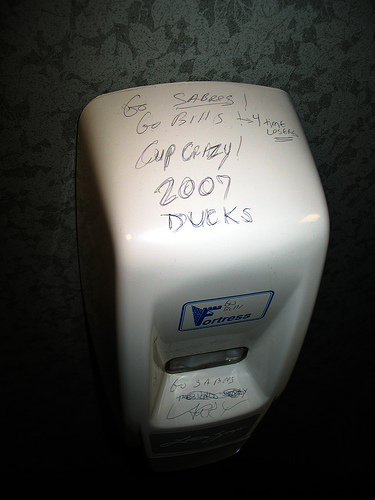 Go SABRES!
Go Bills → 4 TIME
LOSERS
CUP CRAZY!
2007
DUCKS
Go
Fortress
GO SABRES